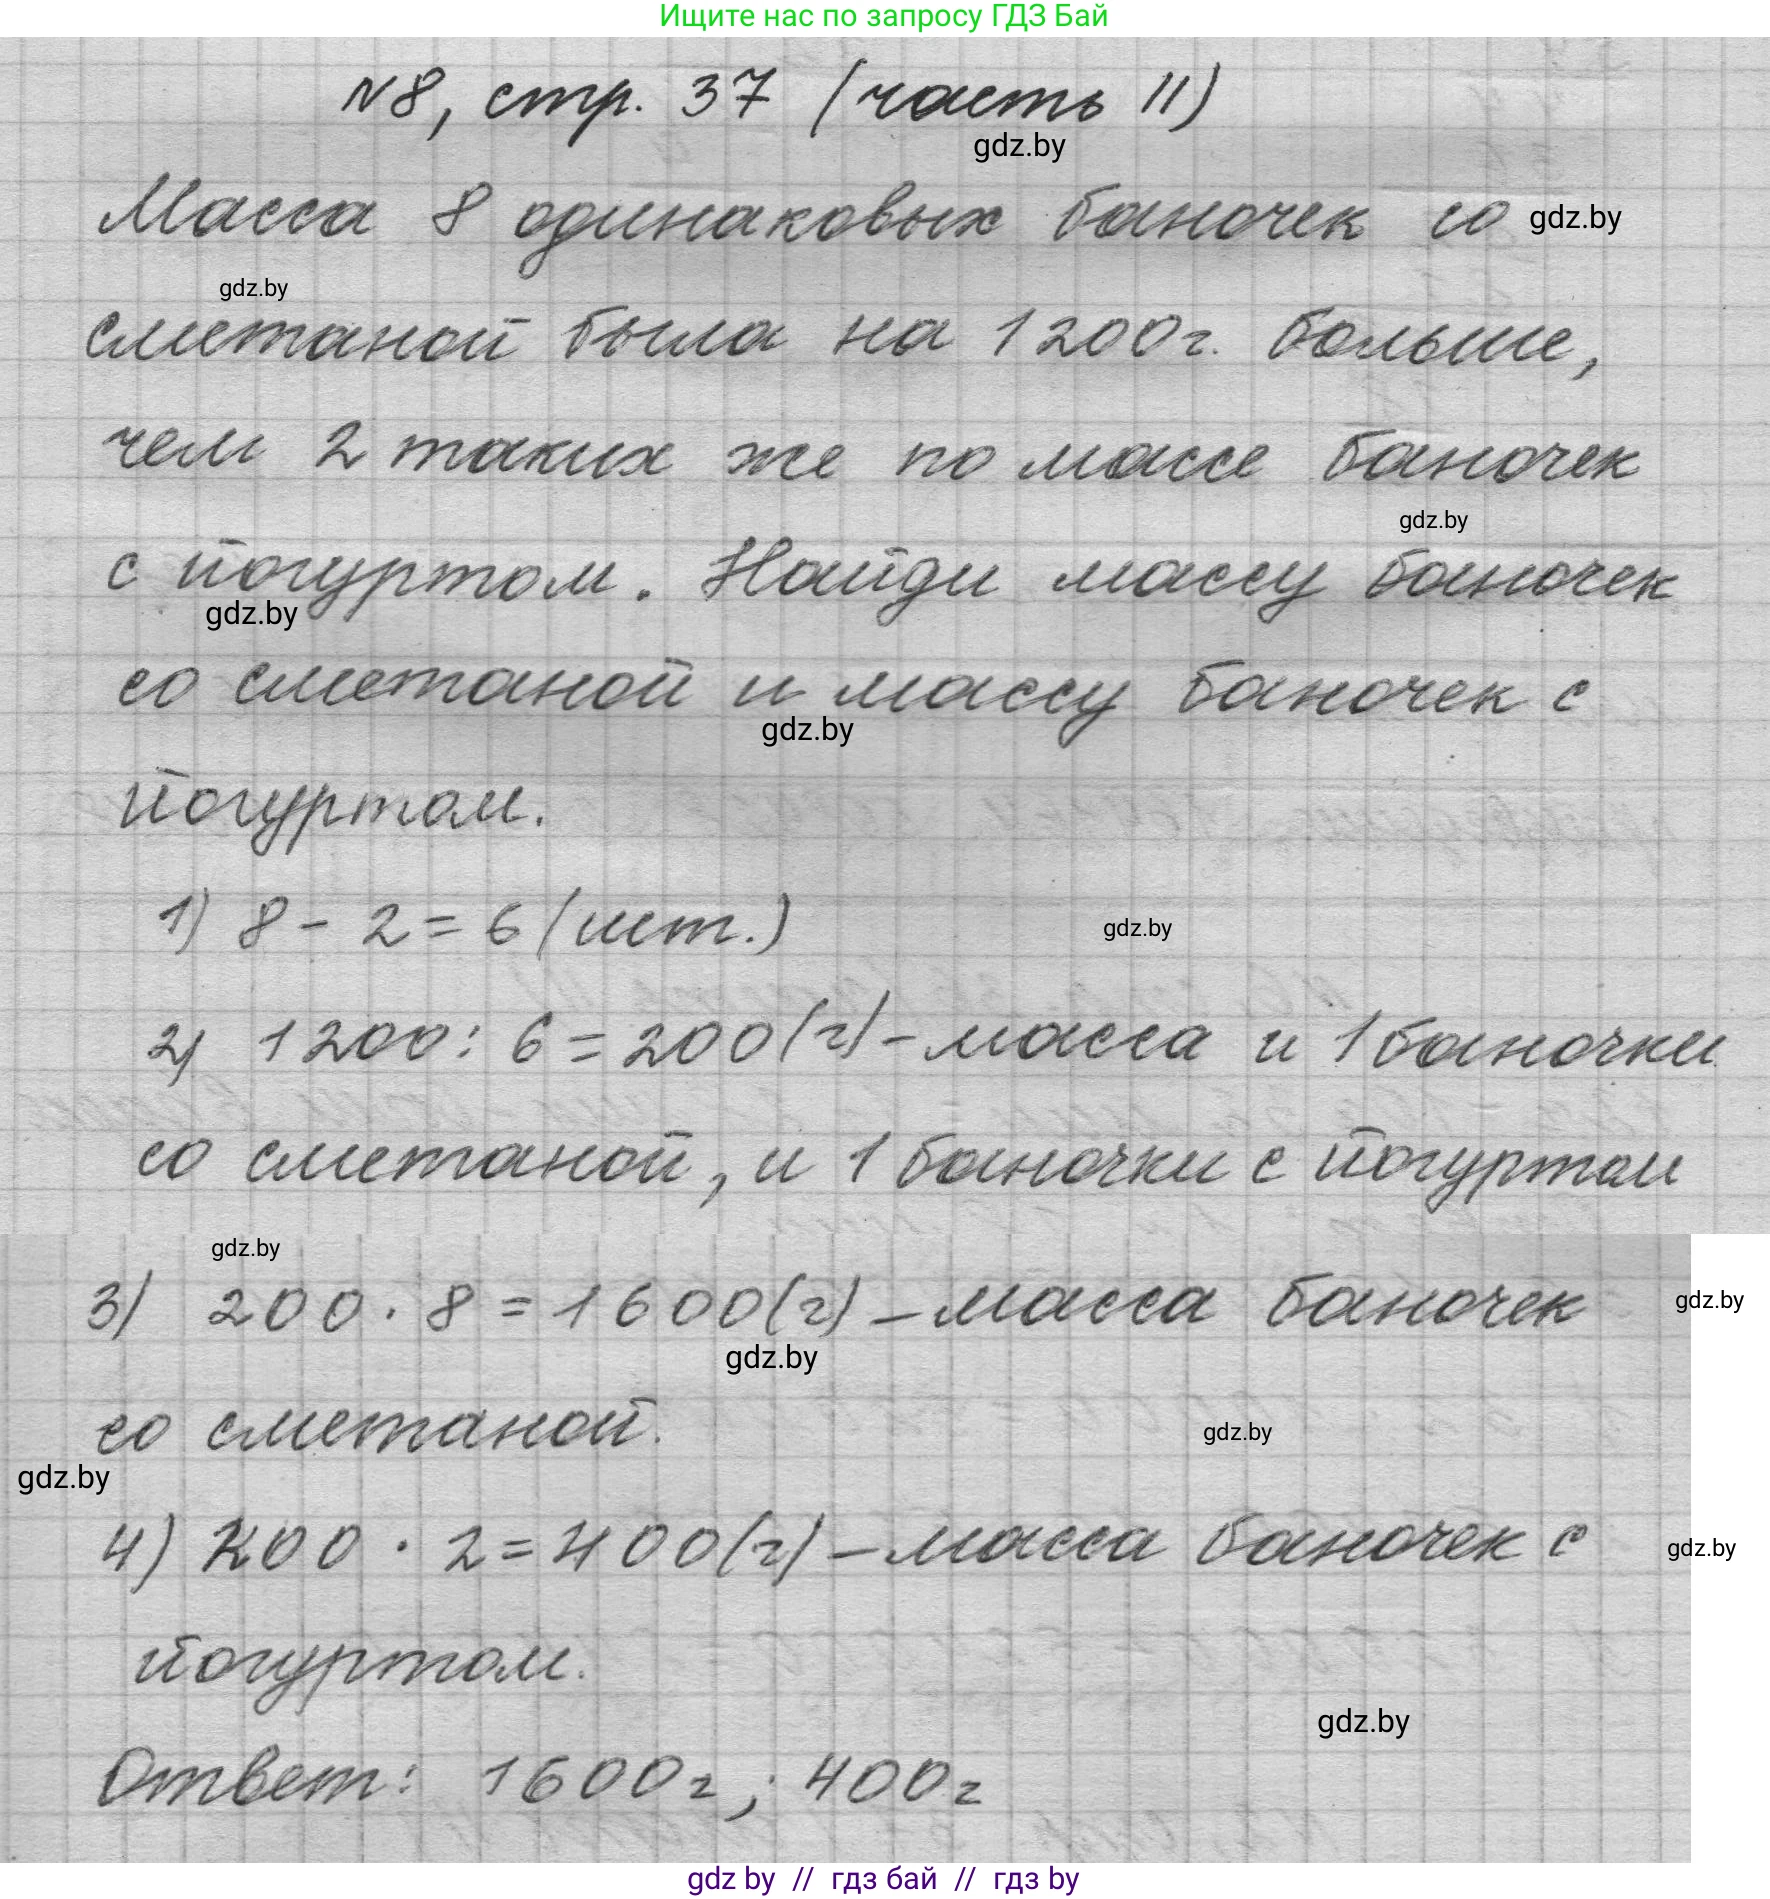 Ищите нас по запросу ГДЗ Бай
№8, стр. 37 (часть II)
gdz.by
Масса 8 одинаковых баночек со
gdz.by
gdz.by
сметаной была на 1200г. больше,
чем 2 таких же по массе баночек
gdz.by
с йогуртом. Найди массу баночек
gdz.by
со сметаной и массу баночек с
gdz.by
йогуртом.
1) 8 - 2 = 6 (шт.)
gdz.by
2) 1200 : 6 = 200 (г) - масса и 1 баночки
со сметаной, и 1 баночки с йогуртом
gdz.by
3) 200 · 8 = 1600 (г) - масса баночек
gdz.by
gdz.by
со сметаной.
gdz.by
gdz.by
4) 200 · 2 = 400 (г) - масса баночек с
gdz.by
йогуртом.
gdz.by
Ответ: 1600г ; 400г
gdz by // гдз бай // гдз by